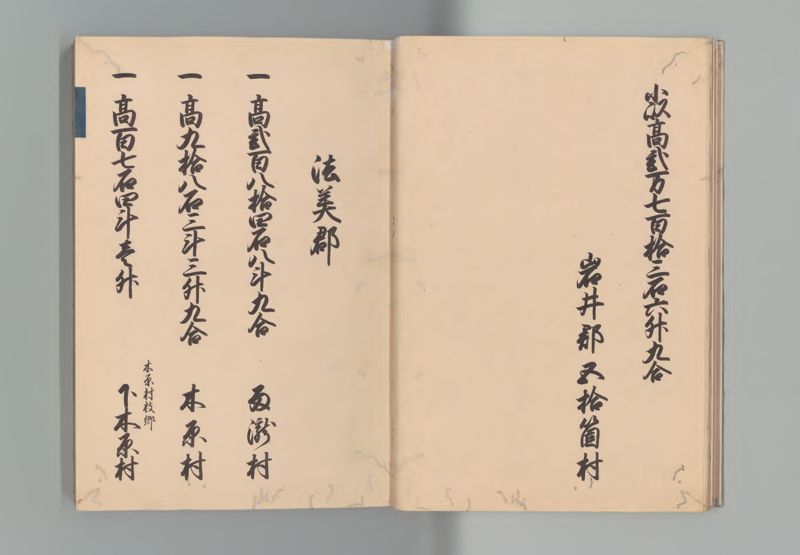 小以高弐万七百拾三石六升九合
岩井郡五拾箇村
法美郡
一高弐百八拾四石八斗九合
雨瀧村
一高九拾八石三斗三升九合
木原村
一高百七石四斗壱升
木原村枝郷
下木原村